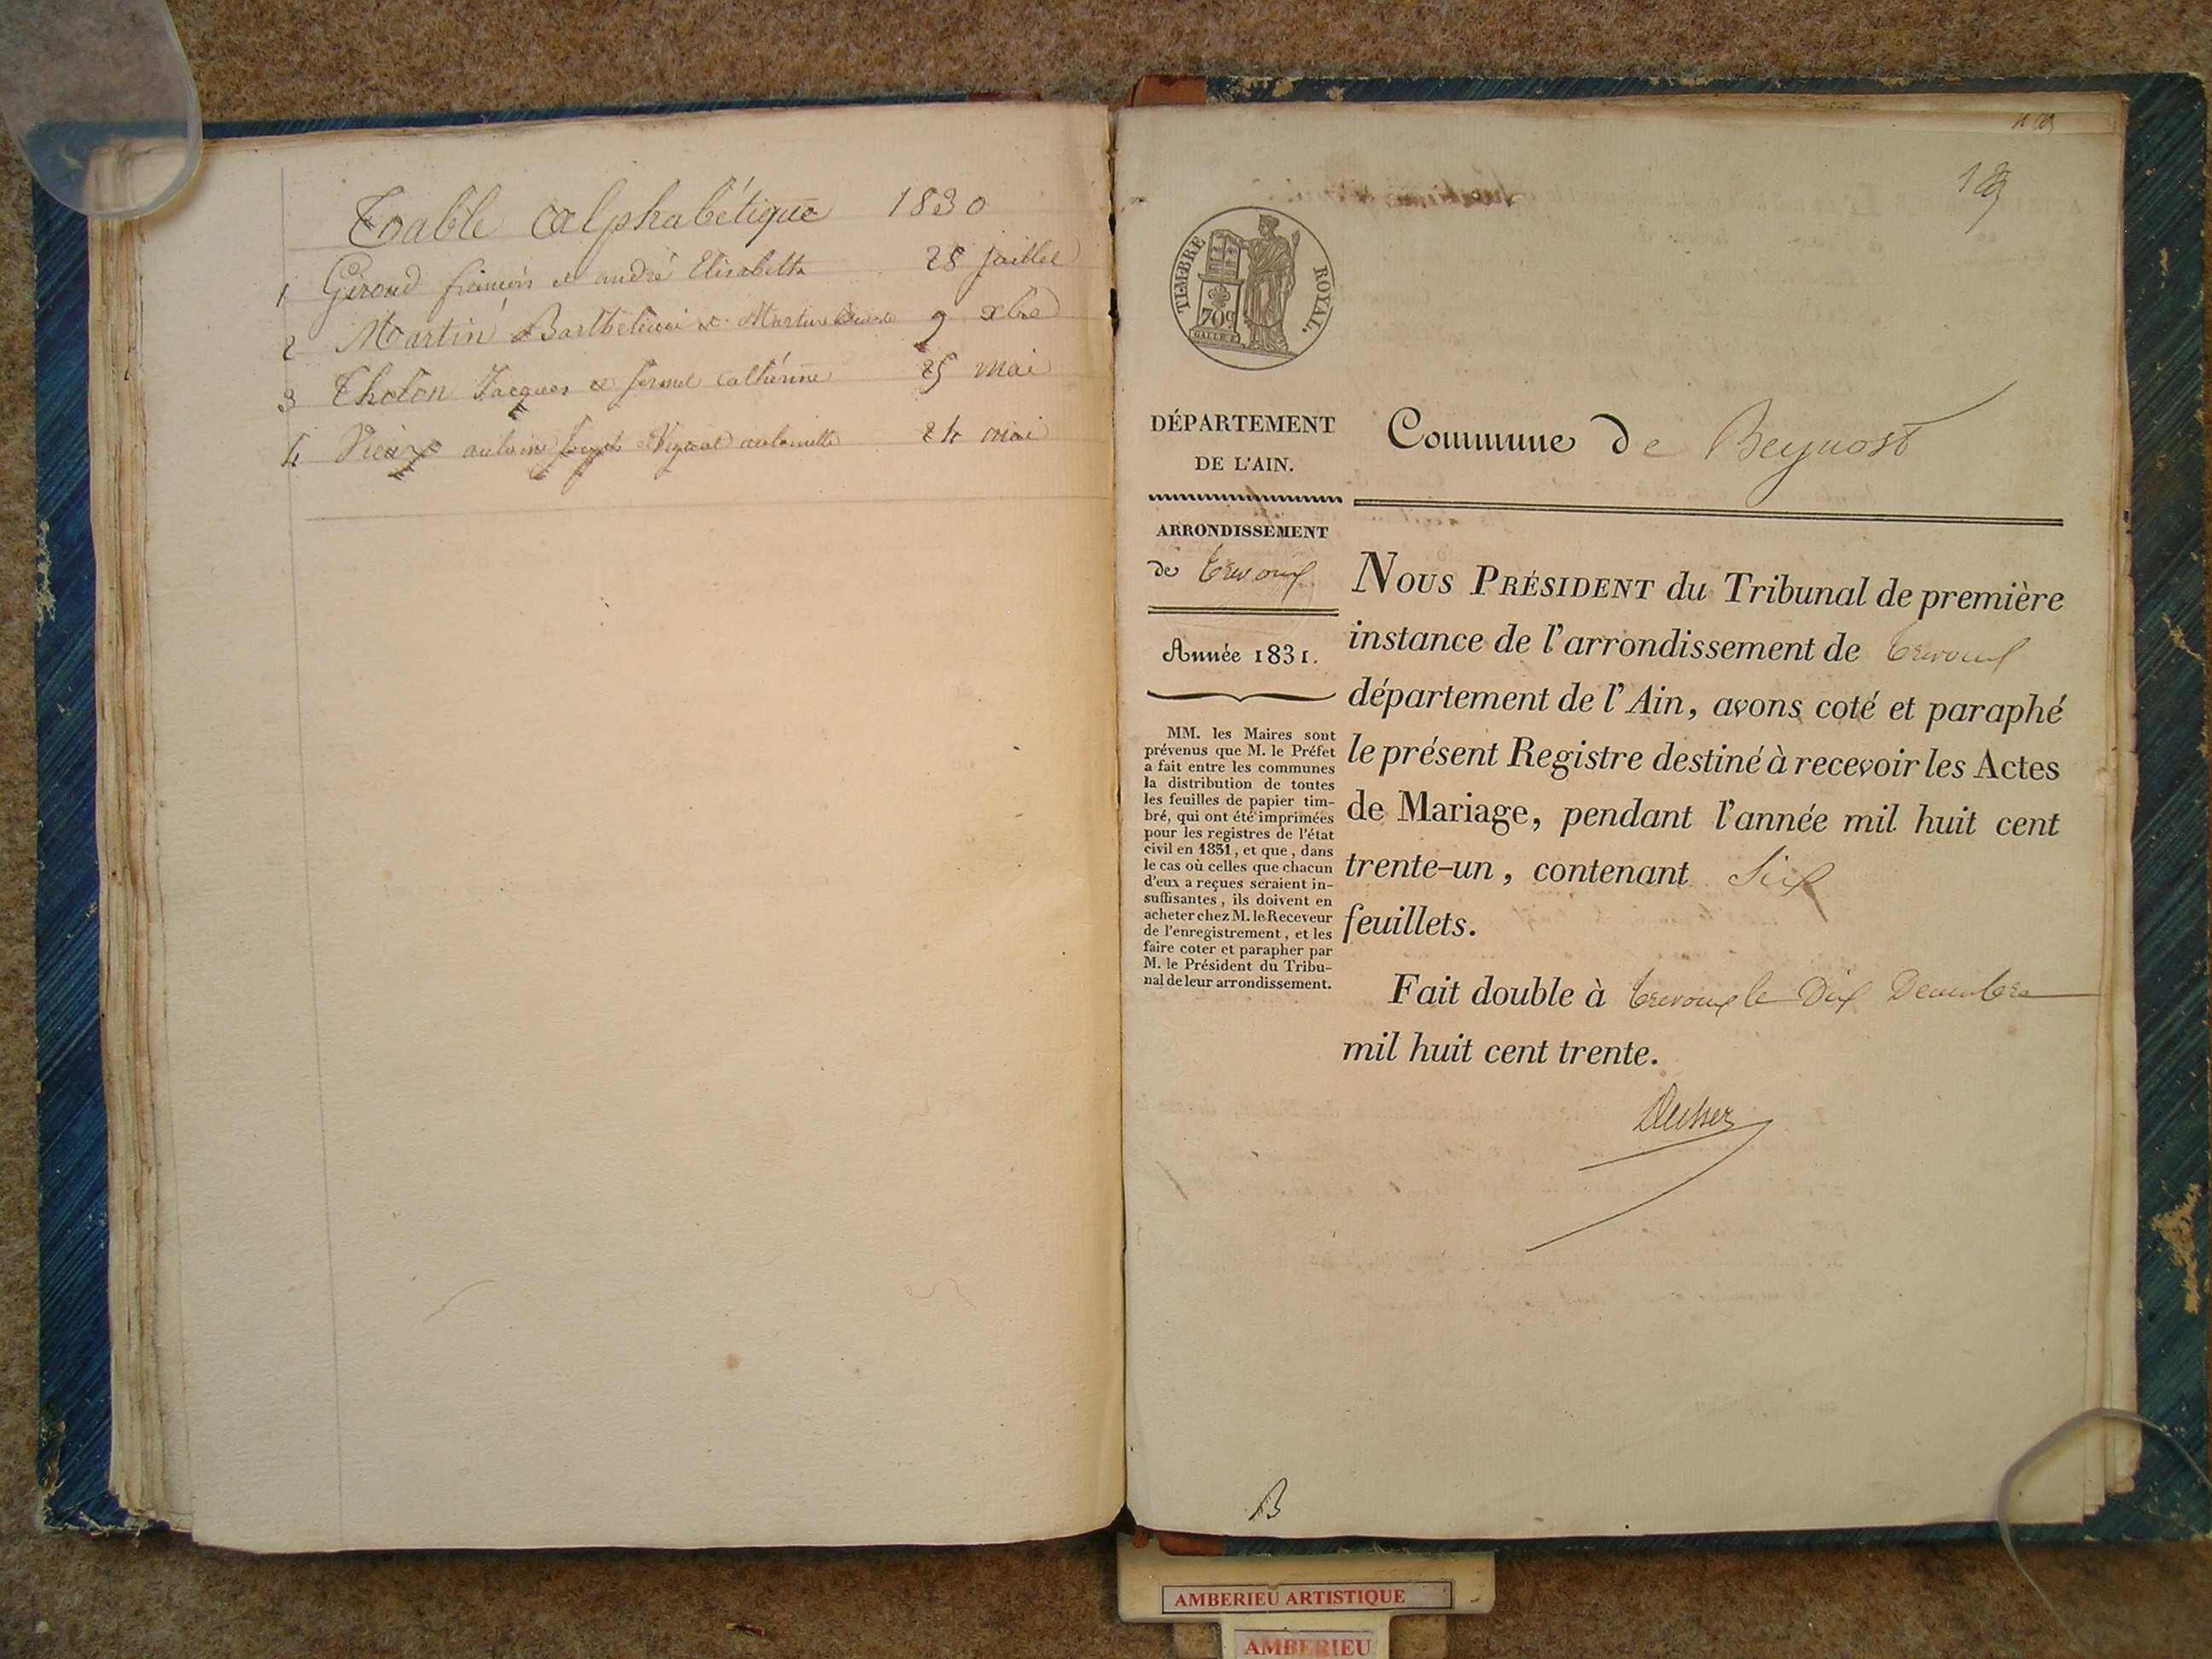 Table alphabétique 1830
1 Giroud françois et andré Elisabeth 28 juillet
2 Martin Barthélemi et Martin 9 xbre
3 Tholon Jacques et catherine 25 mai
4 Vieux antoine joseph Vignat antoinette 24 mai
189
TIMBRE ROYAL.
70c
DÉPARTEMENT
DE L'AIN.
Commune de Beynost
ARRONDISSEMENT
de Trevoux
Année 1831.
MM. les Maires sont
prévenus que M. le Préfet
a fait entre les communes
la distribution de toutes
les feuilles de papier tim-
bré, qui ont été imprimées
pour les registres de l'état
civil en 1831, et que, dans
le cas où celles que chacun
d'eux a reçues seraient in-
suffisantes, ils doivent en
acheter chez M. le Receveur
de l'enregistrement, et les
faire coter et parapher par
M. le Président du Tribu-
nal de leur arrondissement.
NOUS PRÉSIDENT du Tribunal de première
instance de l'arrondissement de Trevoux
département de l'Ain, avons coté et paraphé
le présent Registre destiné à recevoir les Actes
de Mariage, pendant l'année mil huit cent
trente-un, contenant Six
feuillets.
Fait double à Trevoux le Dix Decembre
mil huit cent trente.
B
AMBERIEU ARTISTIQUE
AMBERIEU